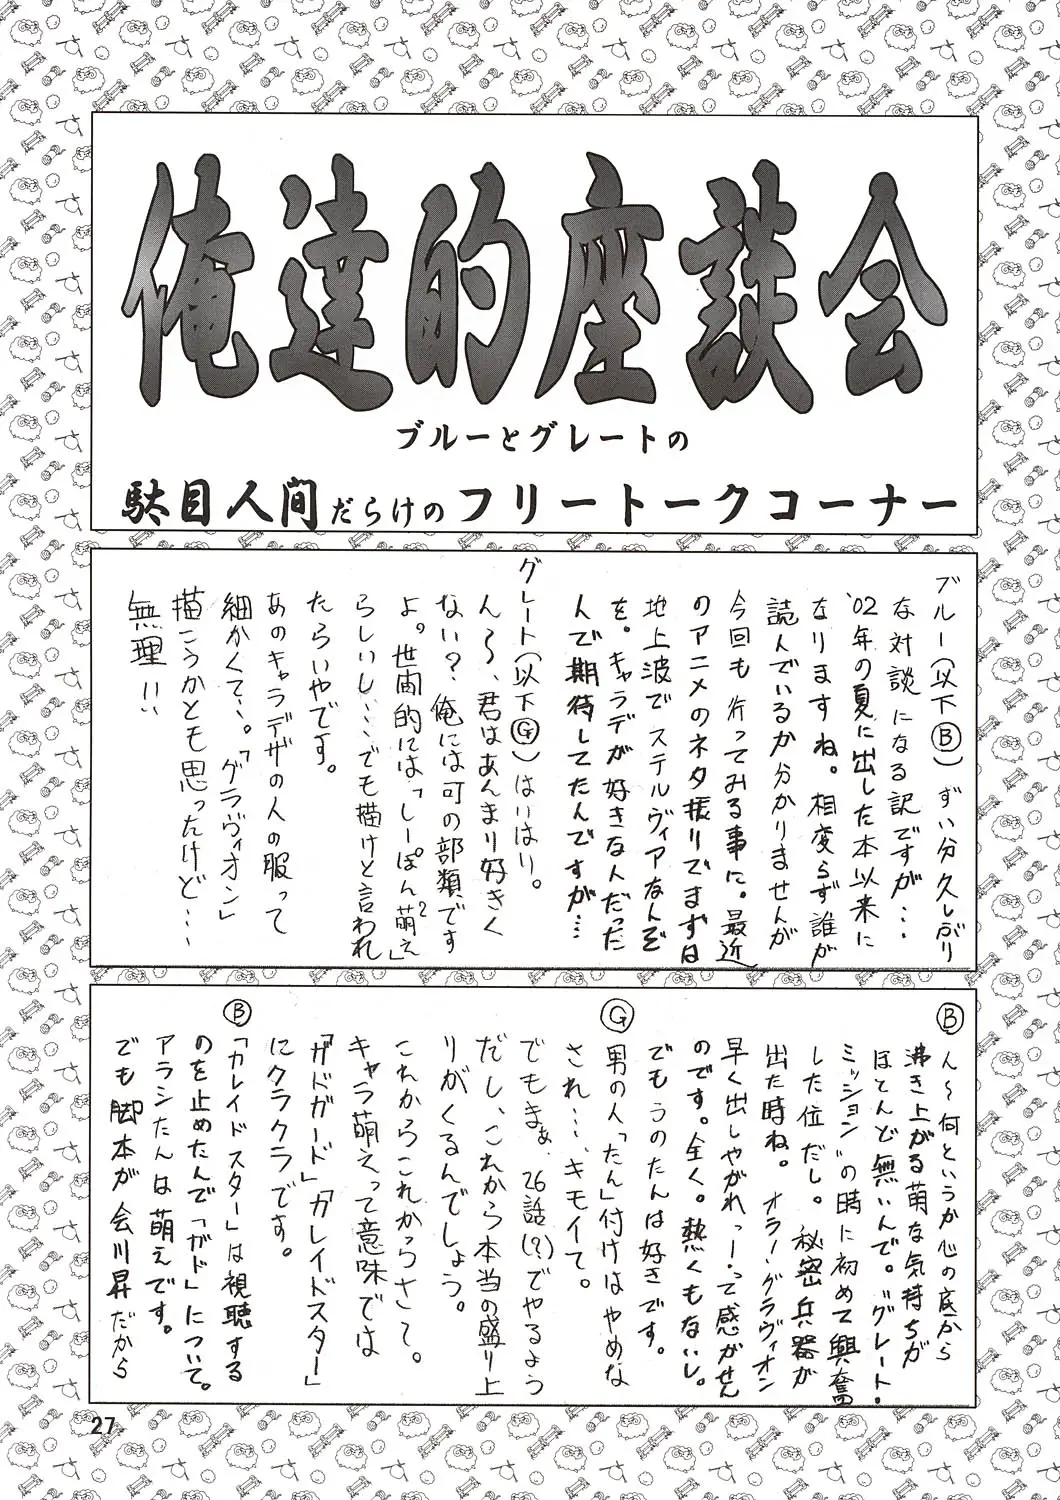 俺達的座談会
ブルーとグレートの
駄目人間だらけのフリートークコーナー
ブルー(以下Ⓑ)ずい分久しぶり
な対談になる訳ですが…
'02年の夏に出した本以来に
なりますね。相変らず誰が
読んでいるか分かりませんが
今回も行ってみる事に。最近
のアニメのネタ振りでまずは
地上波でステルヴィアなんぞ
を。キャラデが好きなんだった
んで期待してたんですが…
グレート(以下Ⓖ)はいはい。
ん～、君はあんまり好きく
ない?俺には可の部類です
よ。世間的には「しーぽん萌え」?
らしいし…でも描けと言われ
たらいやです。
あのキャラデザの人の服って
細かくて…。「グラヴィオン」
描こうかとも思ったけど…
無理!!
Ⓑ
ん～何というか心の底から
沸き上がる萌な気持ちが
ほとんど無いんで。"グレート・
ミッション"の時に初めて興奮
した位だし。秘密兵器が
出た時ね。オラーグラヴィオン
早く出しやがれっ!って感がせん
のです。全く。熱くもないし。
でもうのたんは好きです。
Ⓖ
男の人「たん」付けはやめな
され…キモイて。
でもまぁ、26話(?)でやるよう
だし、これから本当の盛り上
りがくるんでしょう。
これからこれかっらさて。
キャラ萌えって意味では
「ガドガード」「カレイドスター」
にクラクラです。
Ⓑ
「カレイドスター」は視聴する
のを止めたんで「ガド」について。
アラシたんは萌えです。
でも脚本が会川昇だから
27